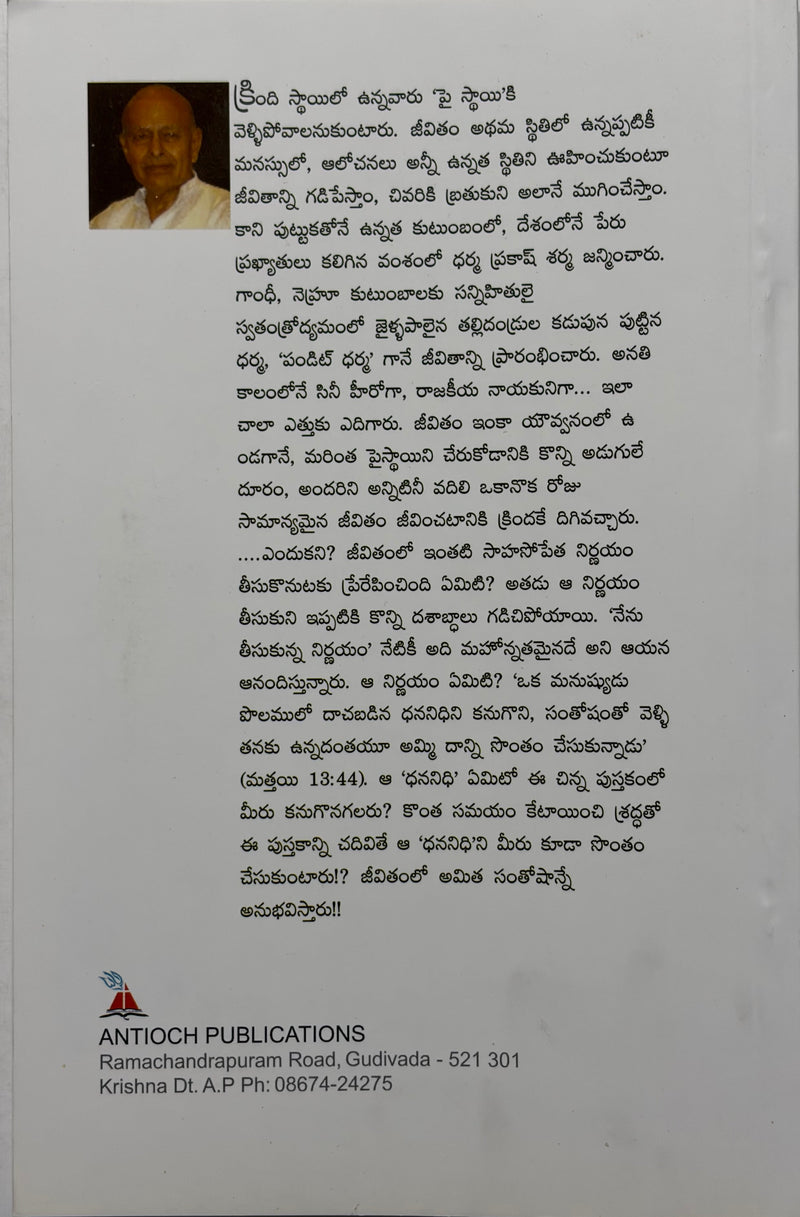 క్రింది స్థాయిలో ఉన్నవారు ‘పై స్థాయి’కి
వెళ్ళిపోవాలనుకుంటారు. జీవితం అథమ స్థితిలో ఉన్నప్పటికీ
మనస్సులో, ఆలోచనలు అన్నీ ఉన్నత స్థితిని ఊహించుకుంటూ
జీవితాన్ని గడిపేస్తాం, చివరికి బ్రతుకుని అలానే ముగించేస్తాం.
కాని పుట్టుకతోనే ఉన్నత కుటుంబంలో, దేశంలోనే పేరు
ప్రఖ్యాతులు కలిగిన వంశంలో ధర్మ ప్రకాష్ శర్మ జన్మించారు.
గాంధీ, నెహ్రూ కుటుంబాలకు సన్నిహితులై
స్వతంత్రోద్యమంలో జైళ్ళపాలైన తల్లిదండ్రుల కడుపున పుట్టిన
ధర్మ, ‘పండిట్ ధర్మ’ గానే జీవితాన్ని ప్రారంభించారు. అనతి
కాలంలోనే సినీ హీరోగా, రాజకీయ నాయకునిగా... ఇలా
చాలా ఎత్తుకు ఎదిగారు. జీవితం ఇంకా యౌవ్వనంలో ఉ
ండగానే, మరింత పైస్థాయిని చేరుకోడానికి కొన్ని అడుగులే
దూరం, అందరిని అన్నిటినీ వదిలి ఒకానొక రోజు
సామాన్యమైన జీవితం జీవించటానికి క్రిందకే దిగివచ్చారు.
....ఎందుకని? జీవితంలో ఇంతటి సాహసోపేత నిర్ణయం
తీసుకొనుటకు ప్రేరేపించింది ఏమిటి? అతడు ఆ నిర్ణయం
తీసుకుని ఇప్పటికి కొన్ని దశాబ్ధాలు గడిచిపోయాయి. ‘నేను
తీసుకున్న నిర్ణయం’ నేటికీ అది మహోన్నతమైనదే అని ఆయన
ఆనందిస్తున్నారు. ఆ నిర్ణయం ఏమిటి? ‘ఒక మనుష్యుడు
పొలములో దాచబడిన ధననిధిని కనుగొని, సంతోషంతో వెళ్ళి
తనకు ఉన్నదంతయూ అమ్మి దాన్ని సొంతం చేసుకున్నాడు’
(మత్తయి 13:44). ఆ ‘ధననిధి’ ఏమిటో ఈ చిన్న పుస్తకంలో
మీరు కనుగొనగలరు? కొంత సమయం కేటాయించి శ్రద్ధతో
ఈ పుస్తకాన్ని చదివితే ఆ ‘ధననిధి’ని మీరు కూడా సొంతం
చేసుకుంటారు!? జీవితంలో అమిత సంతోషాన్నే
అనుభవిస్తారు!!
ANTIOCH PUBLICATIONS
Ramachandrapuram Road, Gudivada - 521 301
Krishna Dt. A.P Ph: 08674-24275